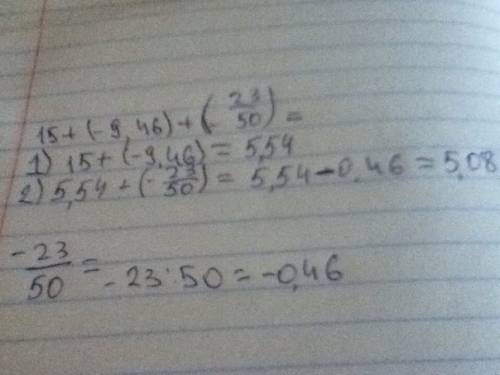 15+(-9,46)+(-23/50)=
1) 15+(-9,46)=5,54
2) 5,54+(-23/50)=5,54-0,46=5,08
-23/50=-23:50=-0,46